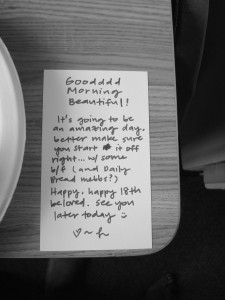 Goodddd
Morning
Beautiful!
It's going to be
an amazing day,
better make sure
you start it off
right... w/ some
b/f (and Daily
Bread mebbs?)
Happy, happy 18th
beloved. see you
later today :)
♡~h